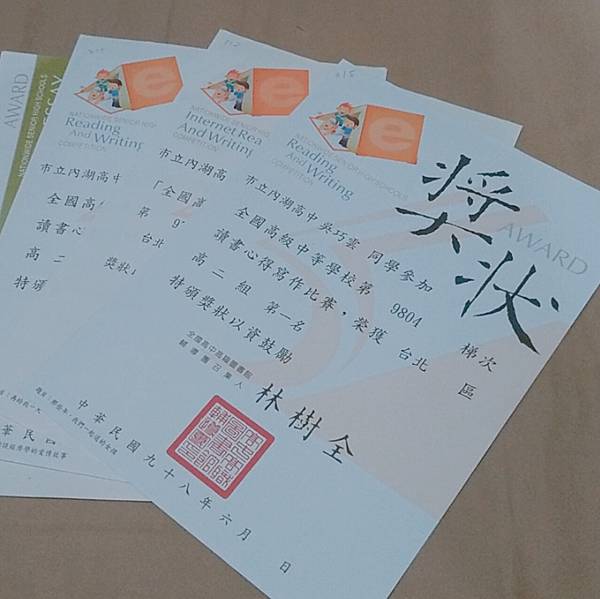 獎狀
AWARD
NATIONWIDE SENIOR HIGH SCHOOLS
Reading
And Writing
COMPETITION
e
市立內湖高中 吳巧雲 同學參加
全國高級中等學校第 9804 梯次
讀書心得寫作比賽,榮獲 台北 區
高二組 第一名
特頒獎狀以資鼓勵
全國高中高職圖書館
輔導團召集人
林樹全
中華民國九十八年六月 日
NATIONWIDE SENIOR HIG
Internet Rea
And Writin
COMPETITION
e
市立內湖高
「全國高
第 9
台北
獎狀
NATIONWIDE SENIOR HIG
Reading
And Writing
COMPETITION
e
市立內湖高中
全國高
讀書心
高二
特頒
中華民
AWARD
NATIONWIDE SENIOR HIGH SCHOOLS
ESSAY
華民